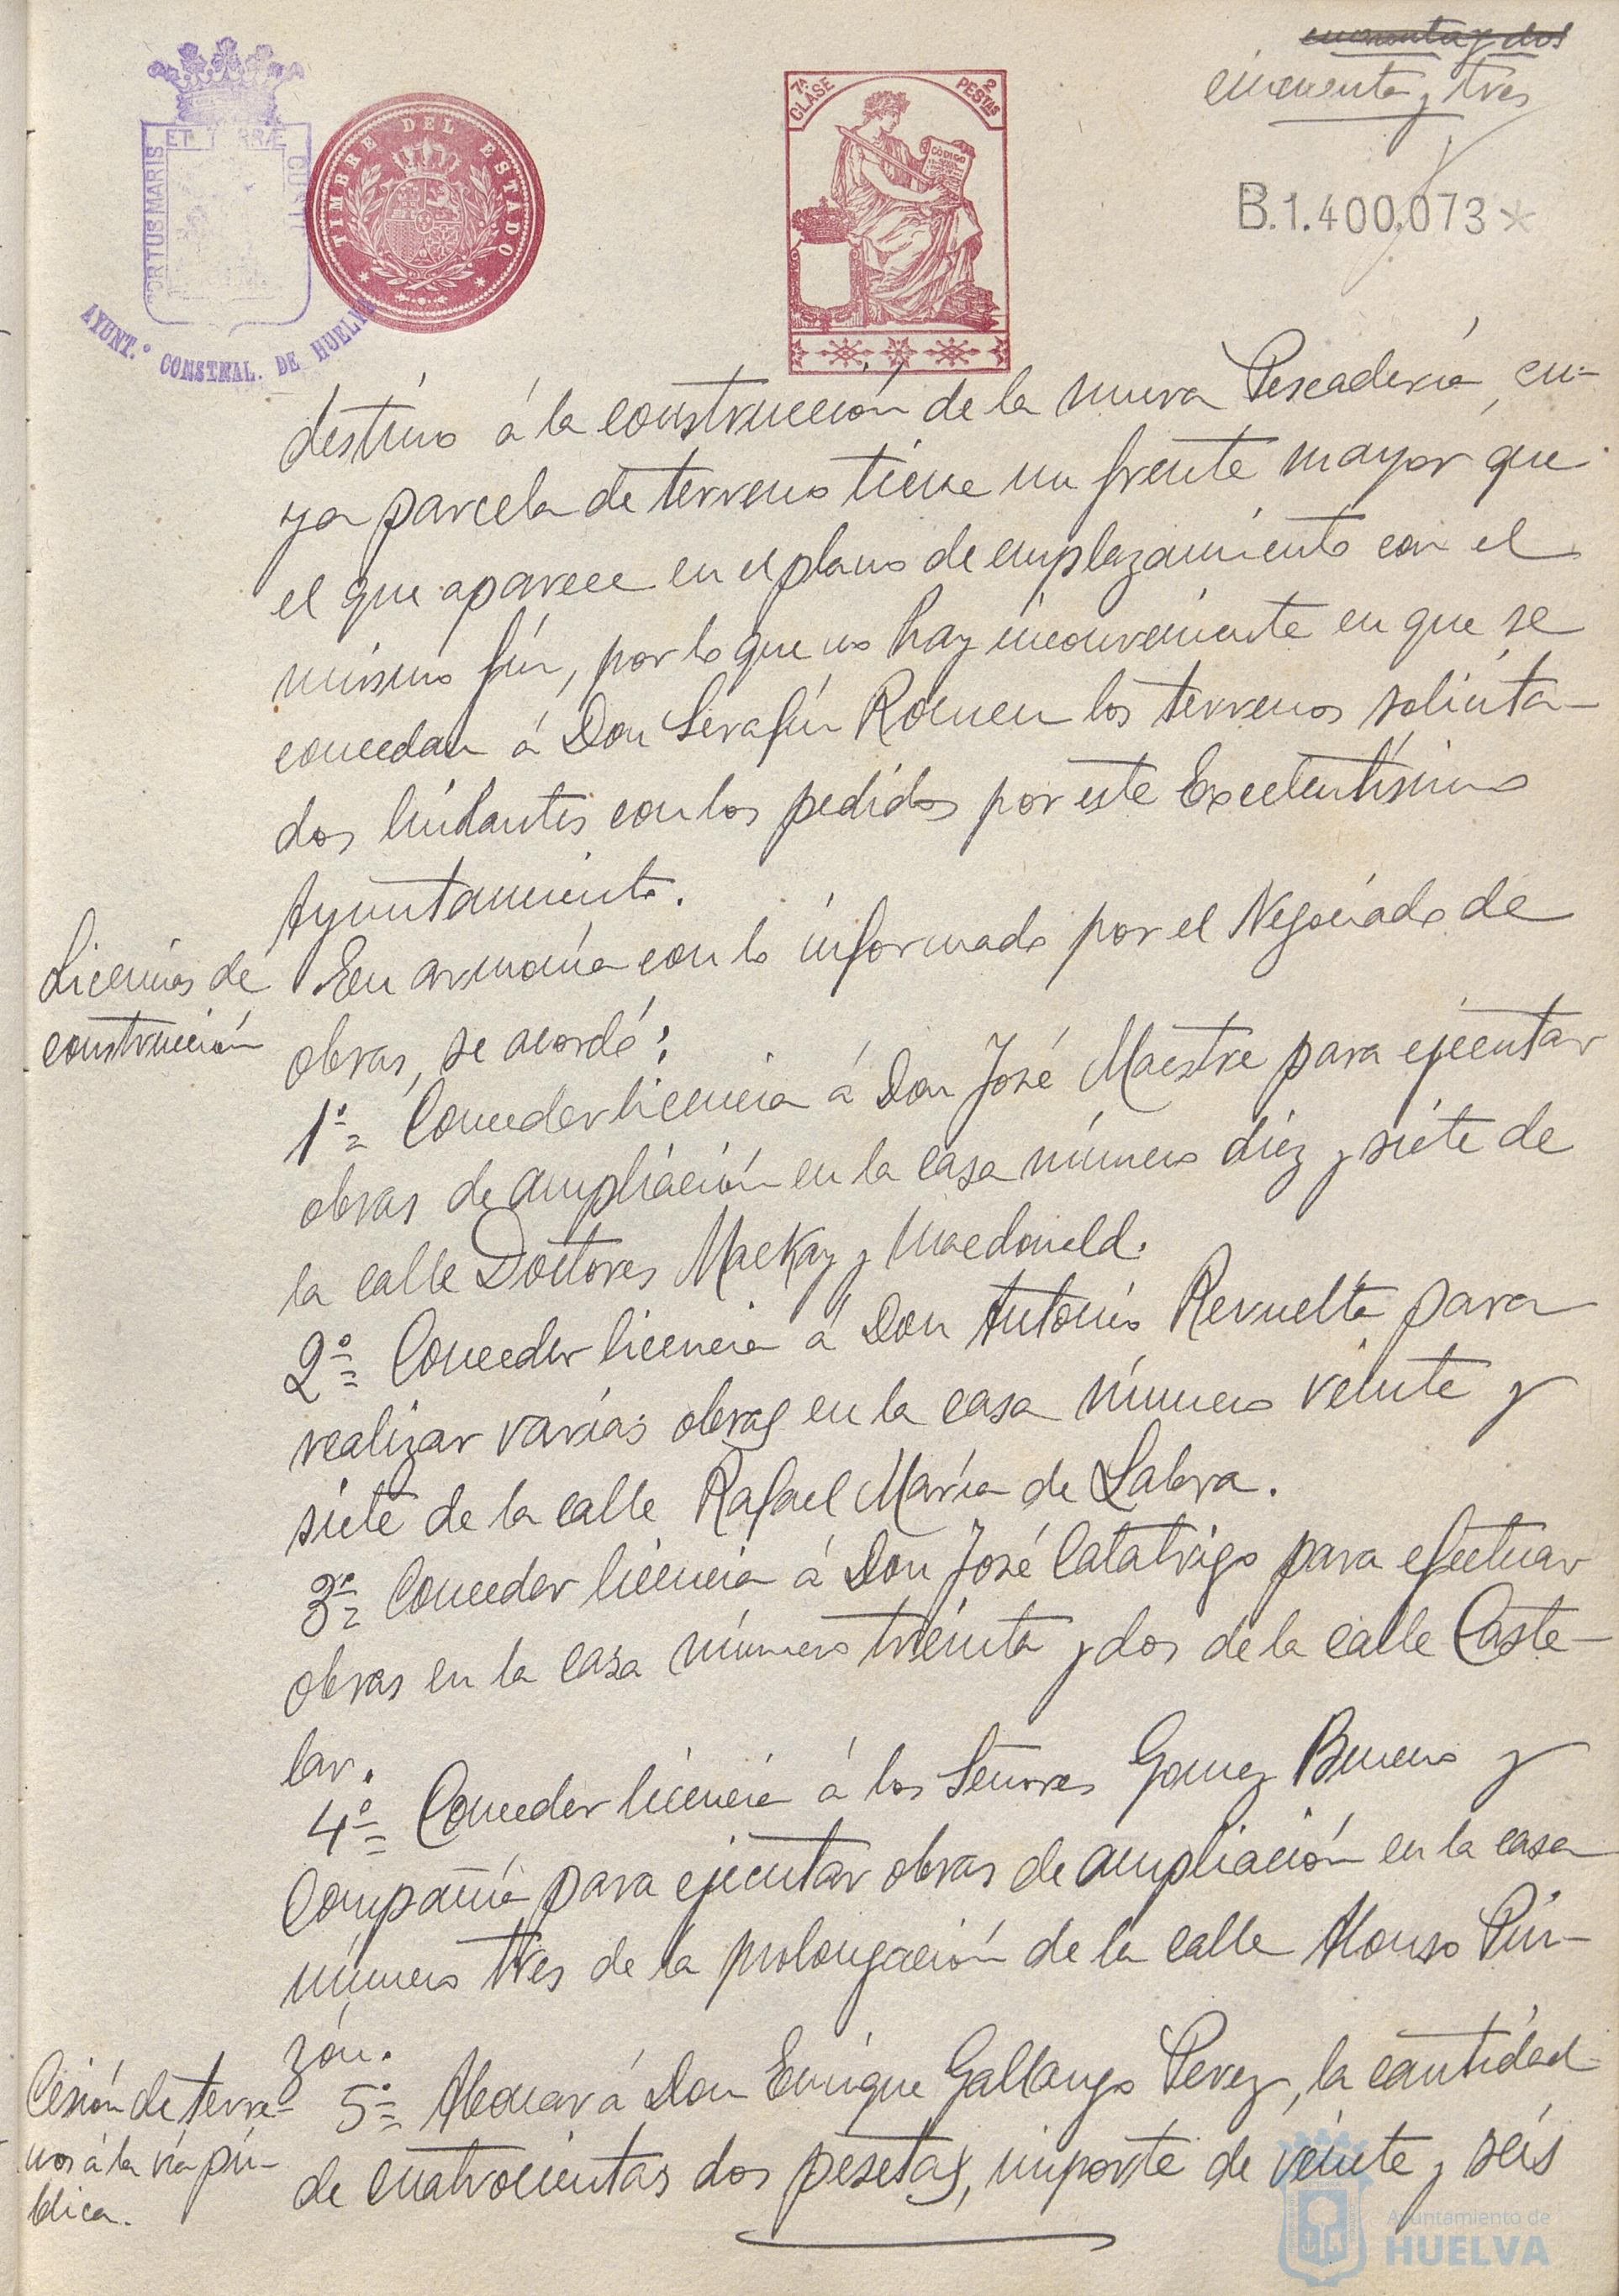 cincuenta y dos
cincuenta y tres
7ª CLASE
2 PESTAS
CÓDIGO
B.1.400,073*
PORTUS MARIS ET TERRÆ CUST
AYUNT.º CONSTNAL. DE HUELVA
TIMBRE DEL ESTADO
destino á la construcción de la nueva Pescadería, cu-
ya parcela de terreno tiene un frente mayor que
el que aparece en el plano de emplazamiento con el
mismo fin, por lo que no hay inconveniente en que se
concedan á Don Serafín Romeu los terrenos solicita-
dos lindantes con los pedidos por este Excelentísimo
Ayuntamiento.
Licencias de
construcción
En armonía con lo informado por el Negociado de
obras, se acordó:
1º = Conceder licencia á Don José Maestre para ejecutar
obras de ampliación en la casa número diez y siete de
la calle Doctores Mackay y Macdonald.
2º = Conceder licencia á Don Antonio Revuelta para
realizar varias obras en la casa número veinte y
siete de la calle Rafael María de Labra.
3º = Conceder licencia á Don José Catatrigo para efectuar
obras en la casa número treinta y dos de la calle Caste-
lar.
4º = Conceder licencia á los Señores Gomez Bueno y
Compañía para ejecutar obras de ampliación en la casa
número tres de la prolongación de la calle Alonso Pin-
zón.
Cesión de terre-
nos á la vía pú-
blica.
5º = Abonar á Don Enrique Gallango Perez, la cantidad
de cuatrocientas dos pesetas, importe de veinte y seis
Ayuntamiento de
HUELVA